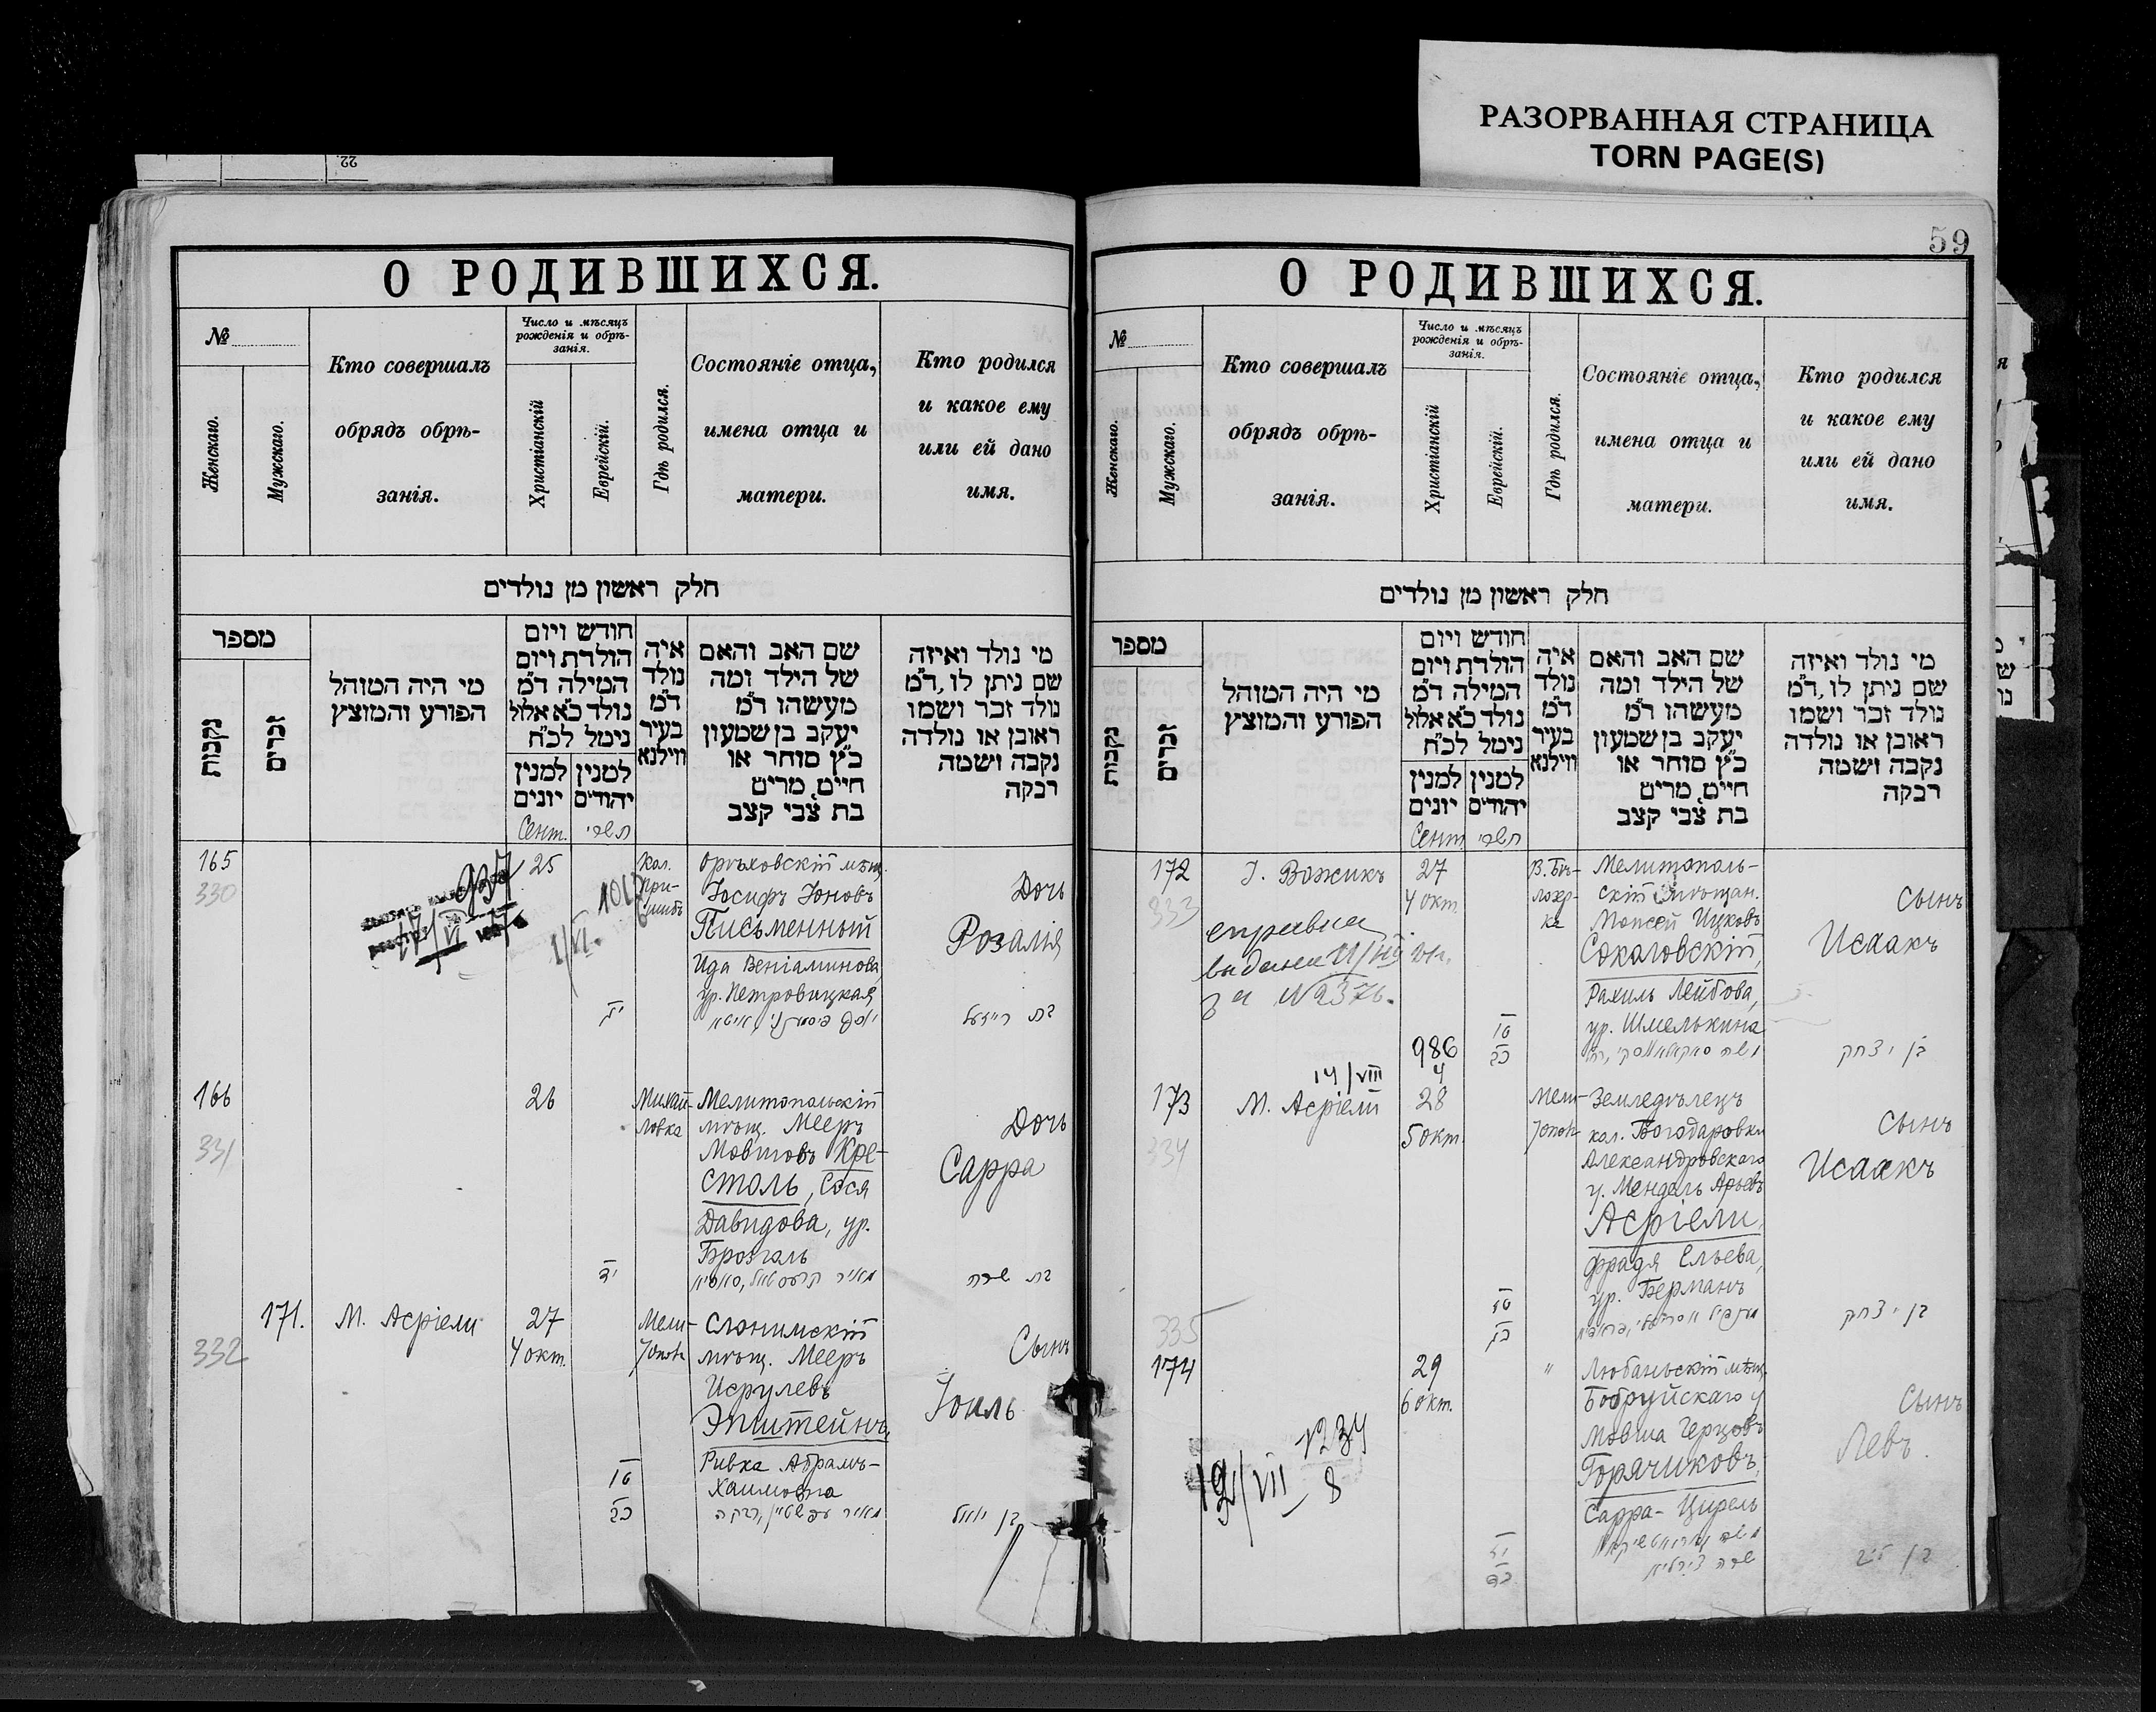 РАЗОРВАННАЯ СТРАНИЦА
TORN PAGE(S)
22.
О РОДИВШИХСЯ.
№
Женскаго.
Мужскаго.
Кто совершалъ
обрядъ обрѣ-
занія.
Число и мѣсяцъ
рожденія и обрѣ-
занія.
Христіанскій
Еврейскій.
Гдѣ родился.
Состояніе отца,
имена отца и
матери.
Кто родился
и какое ему
или ей дано
имя.
חלק ראשון מן נולדים
מספר
נקבות
זכרים
מי היה המוהל
הפורע והמוצץ
חודש ויום
הולדת ויום
המילה ד"מ
נולד כ"א אלול
נימל לכ"ח
למנין
יונים
למנין
יהודים
איה
נולד
ד"מ
בעיר
ווילנא
שם האב והאם
של הילד ומה
מעשהו ד"מ
יעקב בן שמעון
כ"ץ סוחר או
חיים, מרים
בת צבי קצב
מי נולד ואיזה
שם ניתן לו, ד"מ
נולד זכר ושמו
ראובן או נולדה
נקבה ושמה
רבקה
Сент.
תשרי
165
330
25
Кол.
При-
шибъ
Орѣховскій мѣщ.
Іосифъ Іоновъ
Письменный
Ида Веніаминова,
ур. Петровицкая
Дочь
Розалія
בת רייזעל
166
331
26
Михай-
ловка
Мелитопольскій
мѣщ. Мееръ
Мовшовъ Кре-
столь, Сося
Давидова, ур.
Брозголь
יד
Дочь
Сарра
בת שרה
171.
332
М. Асріели
27
4 окт.
Мели-
Слонимскій
мѣщ. Мееръ
Исрулевъ
Эпштейнъ,
Ривка Абрамъ-
Хаимовна
מאיר עפשטיין, רבקה
טו
כב
Сынъ
Іоиль
בן יואל
59
О РОДИВШИХСЯ.
№
Женскаго.
Мужскаго.
Кто совершалъ
обрядъ обрѣ-
занія.
Число и мѣсяцъ
рожденія и обрѣ-
занія.
Христіанскій
Еврейскій.
Гдѣ родился.
Состояніе отца,
имена отца и
матери.
Кто родился
и какое ему
или ей дано
имя.
חלק ראשון מן נולדים
מספר
נקבות
זכרים
מי היה המוהל
הפורע והמוצץ
חודש ויום
הולדת ויום
המילה ד"מ
נולד כ"א אלול
נימל לכ"ח
למנין
יונים
למנין
יהודים
איה
נולד
ד"מ
בעיר
ווילנא
שם האב והאם
של הילד ומה
מעשהו ד"מ
יעקב בן שמעון
כ"ץ סוחר או
חיים, מרים
בת צבי קצב
מי נולד ואיזה
שם ניתן לו, ד"מ
נולד זכר ושמו
ראובן או נולדה
נקבה ושמה
רבקה
Сент
תשרי
172
333
І. Вожикъ
справка
27
4 окт.
В. Бѣ-
лозер-
ка
Мелитополь-
скій мѣщан.
Моисей Ицковъ
Сокаловскій,
Рахиль Лейбова,
ур. Шмелькина
טו
כב
Сынъ
Исаакъ
בן יצחק
986
14/VIII
4
173
334
М. Асріели
28
5 окт.
Мели-
Земледѣлецъ
кол. Богодаровки
Александровскаго
у. Мендель Арьевъ
Асріели,
Фрадя Ельева,
ур. Берманъ
Сынъ
Исаакъ
בן יצחק
335
174
29
6 окт.
"
Любаньскій мѣщ.
Бобруйскаго у
Мовша Герцовъ
Горячиковъ,
Сарра-Цирель
Сынъ
Левъ.
1234
8